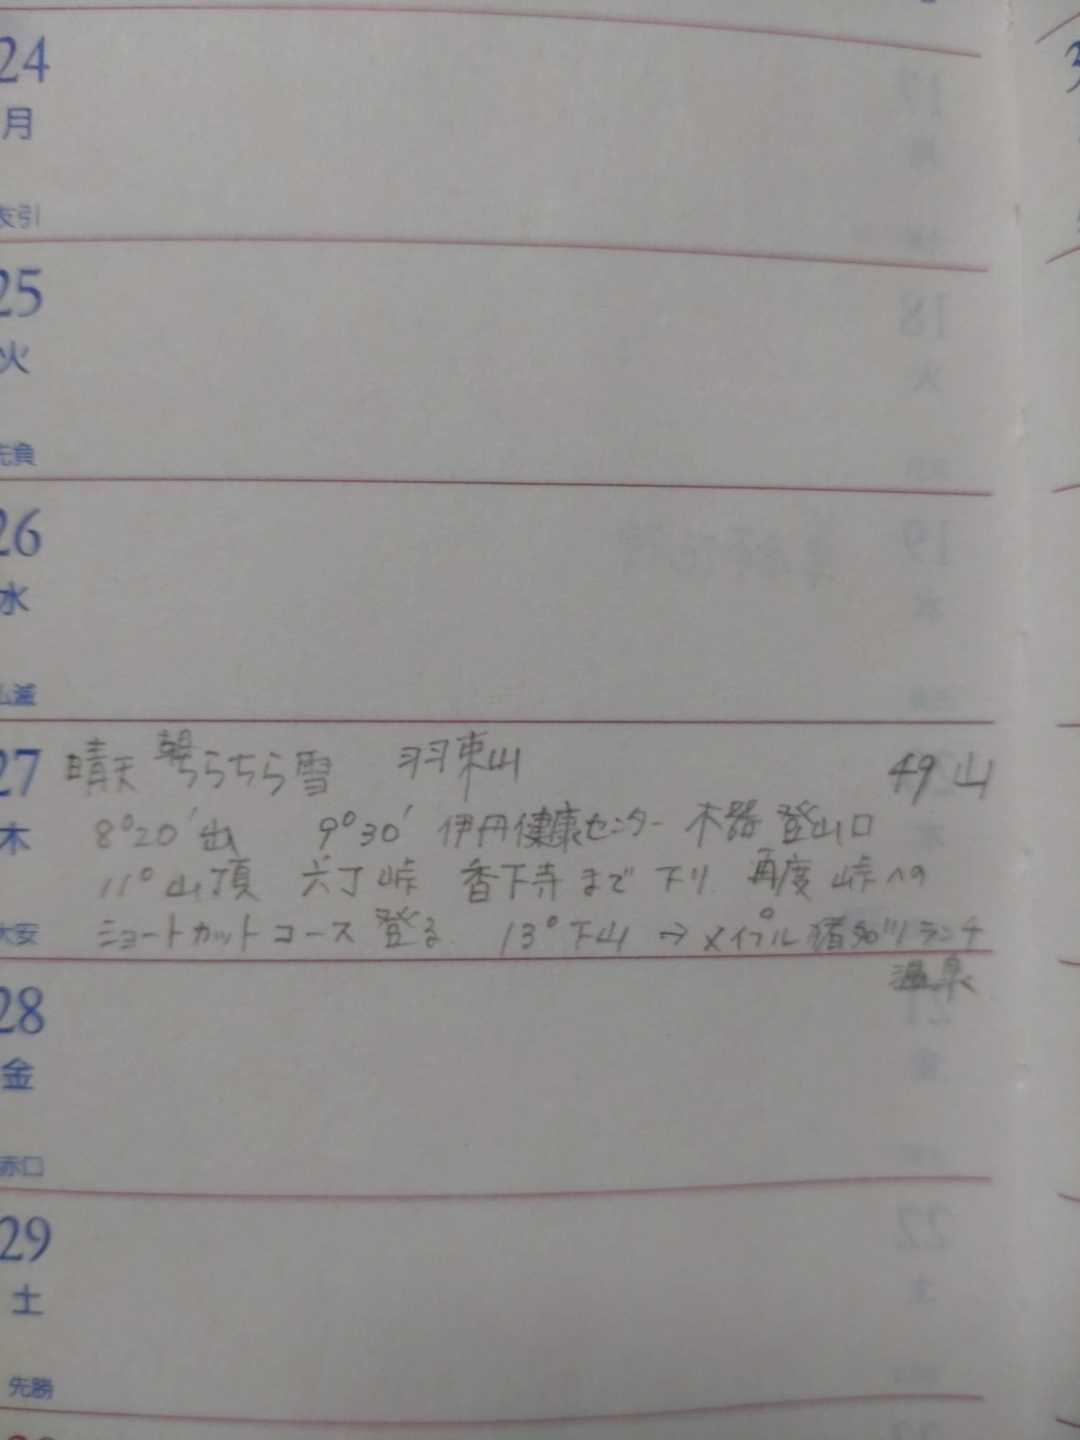 24
月
友引
25
火
先負
26
水
仏滅
27 晴天 朝ちらちら雪 羽束山 49山
木 8°20′出 9°30′ 伊丹健康センター 木器 登山口
11° 山頂 六丁峠 香下寺まで下り 再度 峠への
大安 ショートカットコース 登る 13°下山 → メイプル猪名川ランチ
温泉
28
金
赤口
29
土
先勝